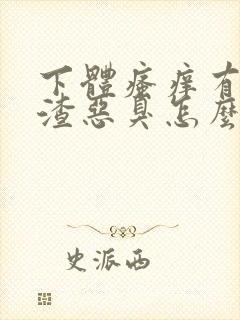 下體瘙癢有
渣惡臭怎麼
史派西